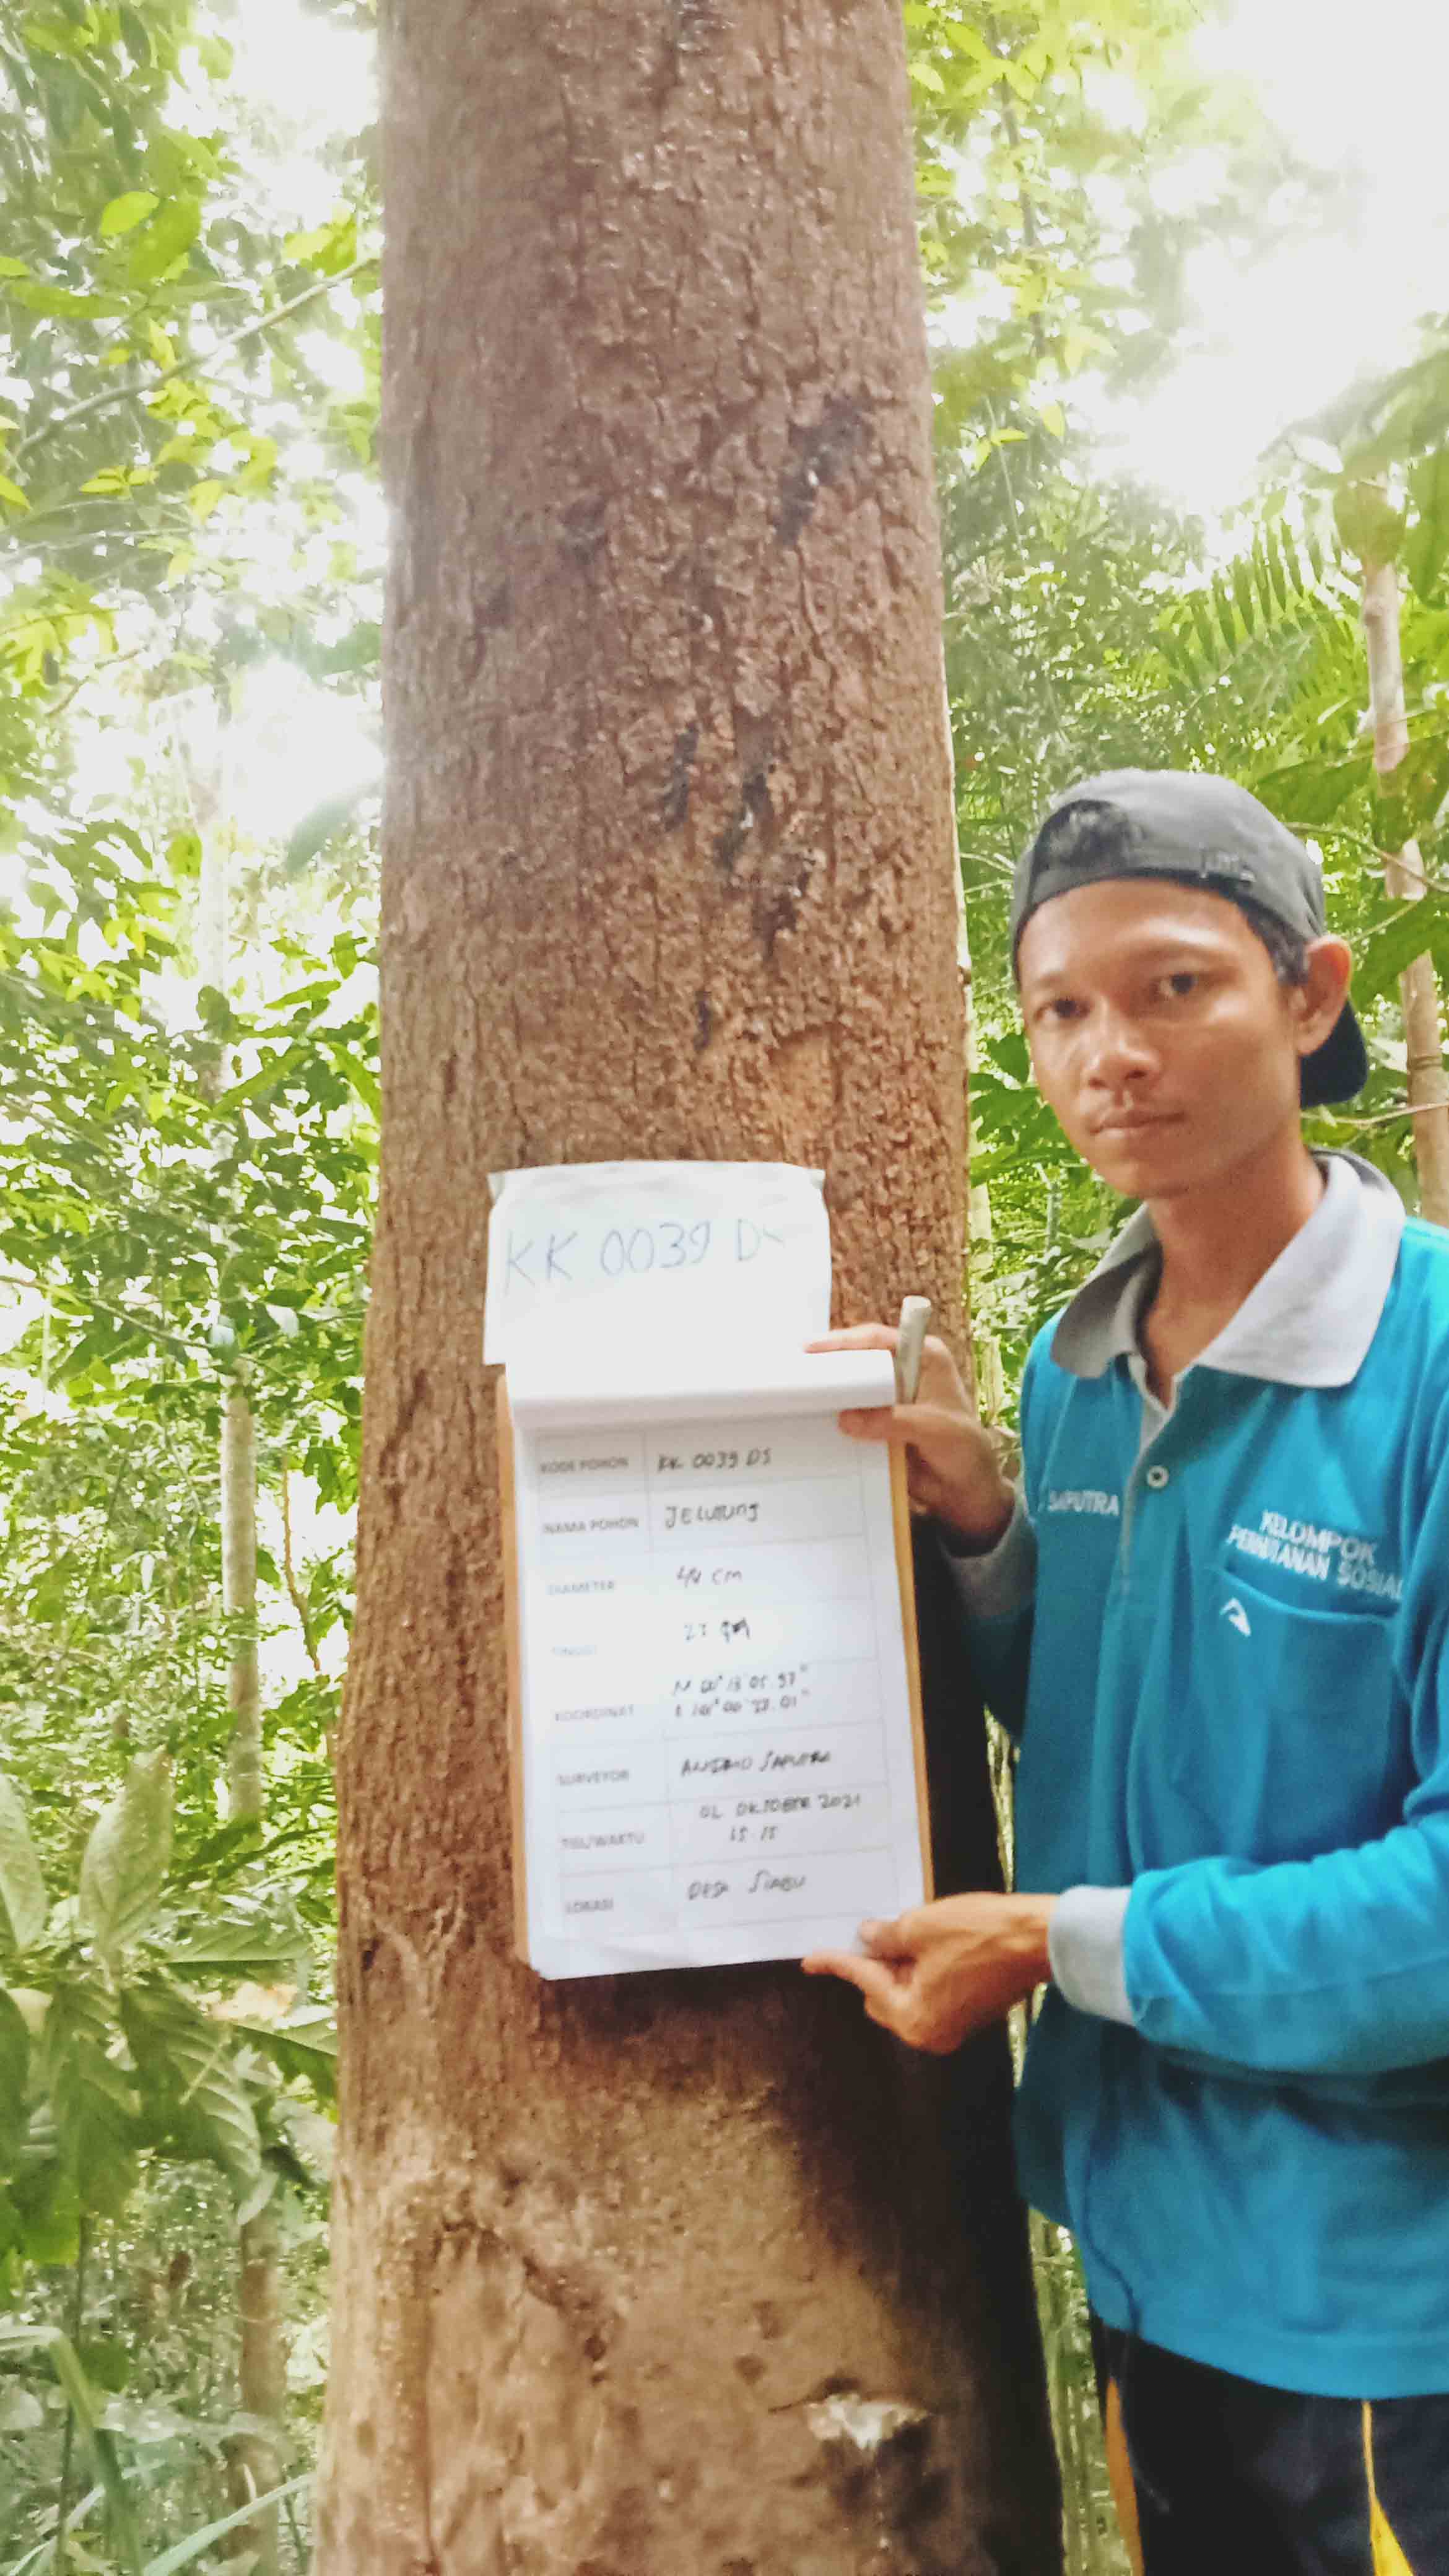 KK 0039 DS
KODE POHON KK 0039 DS
NAMA POHON JELUTUNG
DIAMETER 44 cm
TINGGI
KOORDINAT N 00° 13' 05.97"
SURVEYOR SAPUTRA
TGL/WAKTU OKTOBER 2021
15.15
LOKASI DESA SIABU
SAPUTRA
KELOMPOK
PERHUTANAN SOSIAL